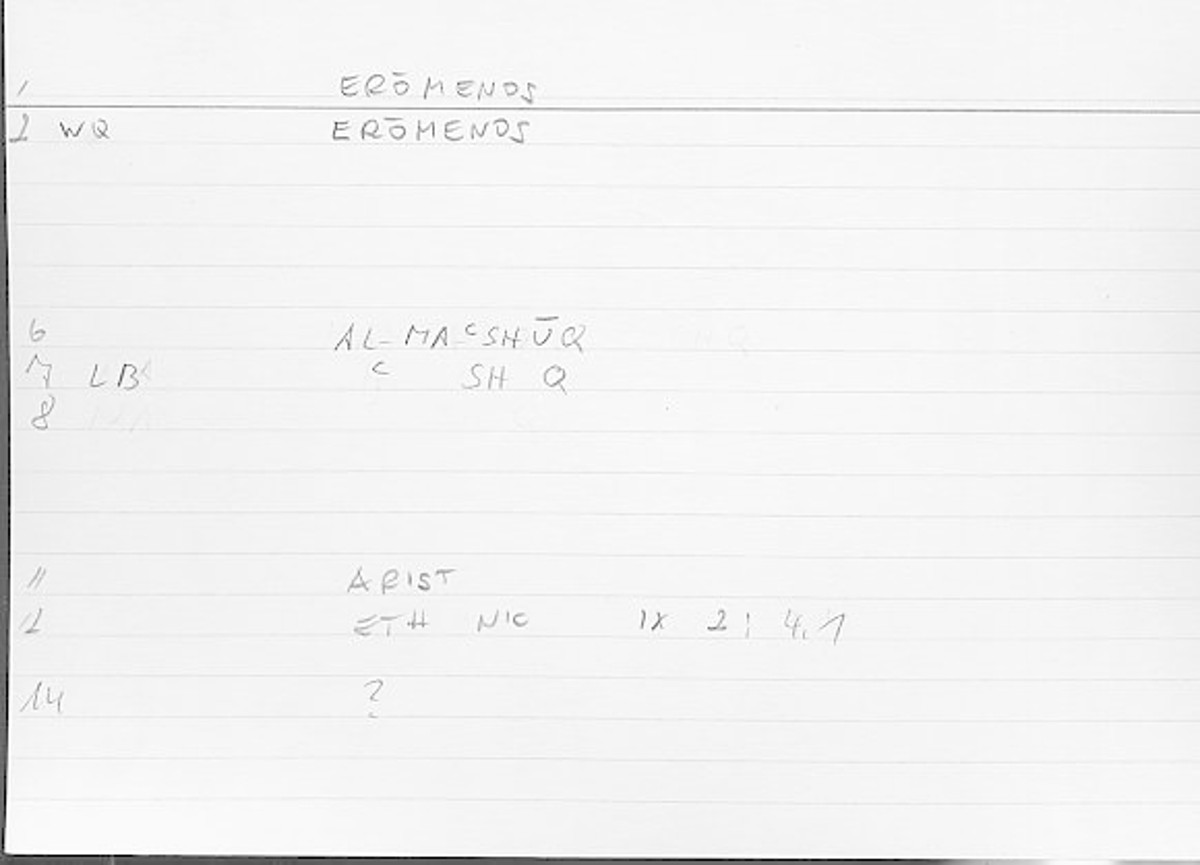 1 ERŌMENOS
2 WQ ERŌMENOS
6 AL-MAᶜSHŪQ
7 LB ᶜ SH Q
8
11 ARIST
12 ETH NIC IX 2; 4.1
14 ?